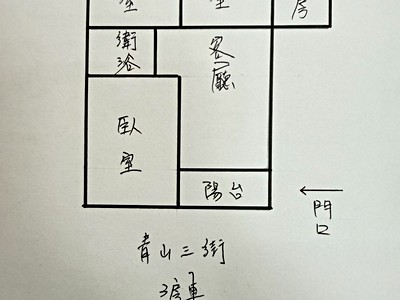 室
室
房
衛
浴
客
廳
臥
室
陽台
門
口
青山三街
3房車